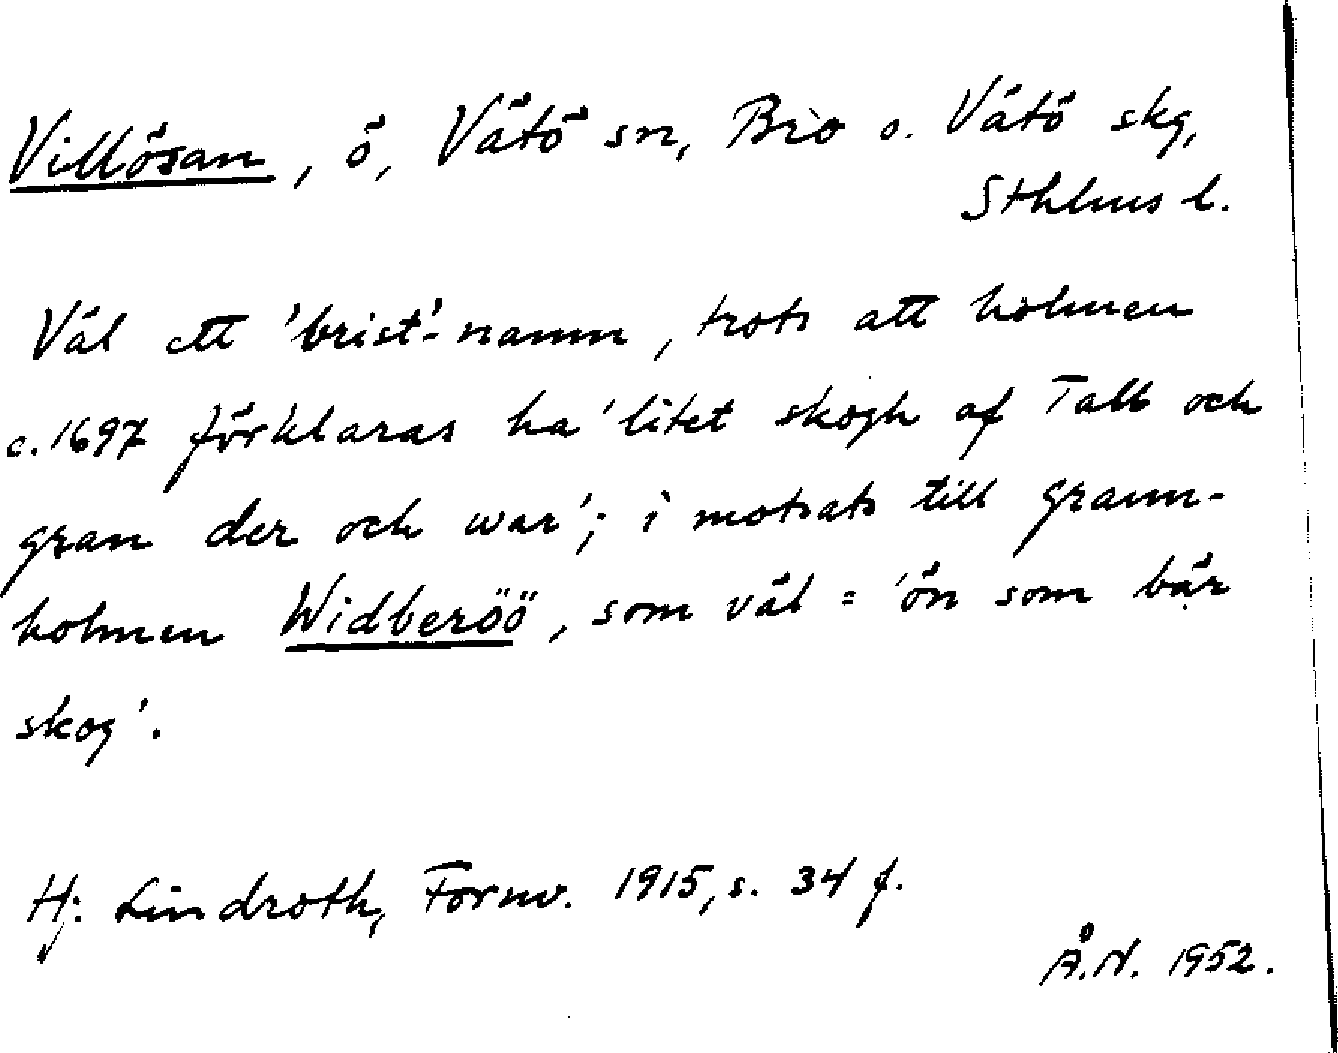 Villösan, ö, Vätö sn, Bro o. Vätö skg,
Sthlms l.
Väl ett 'brist'-namn, trots att holmen
c. 1697 förklaras ha 'litet skogh af Tall och
gran der och war'; i motsats till grann-
holmen Widberöö, som väl = 'ön som bär
skog'.
Hj. Lindroth, Fornv. 1915, s. 34 f.
Å.N. 1952.